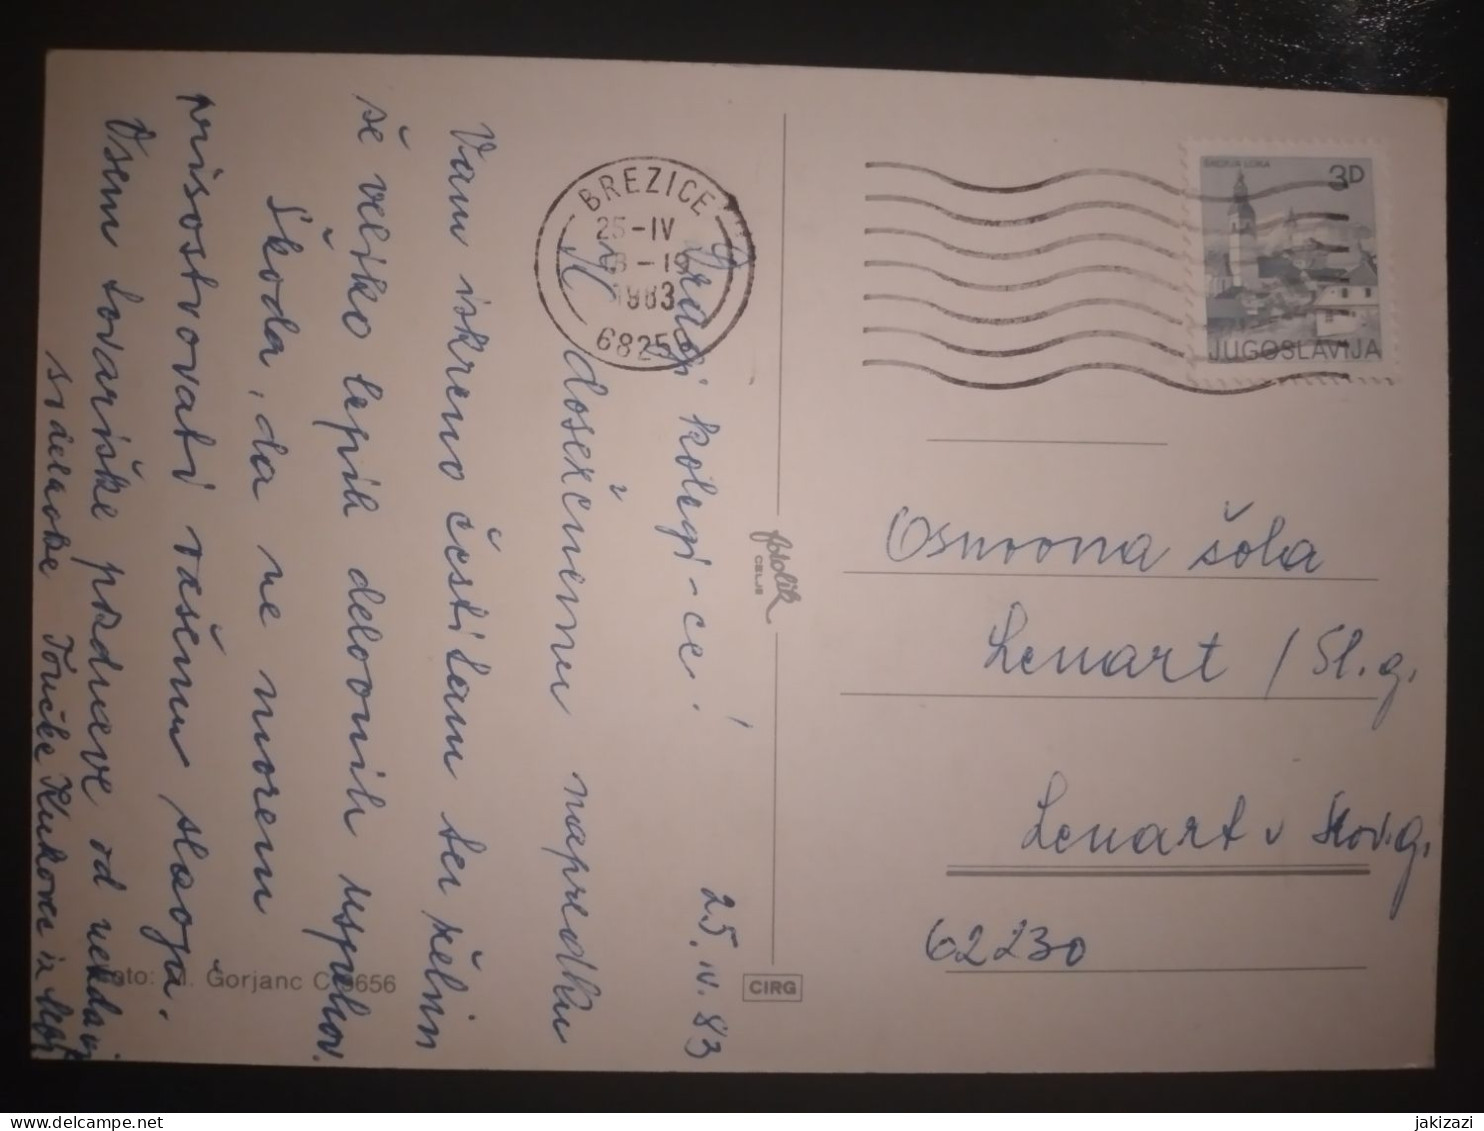 Dragi kolegi-ce! 25. IV. 83
K doseženemu napredku
Vam iskreno čestitam ter želim
še veliko lepih delovnih uspehov.
Škoda, da ne morem
prisostvovati vašemu slavju.
Vsem tovariške pozdrave od nekdanje
sodelavke Tončke Klukovec iz
Foto: Gorjanc C 9656
BREZICE
25-IV
18-19
1983
68250
fotolik
CELJE
CIRG
ŠKOFJA LOKA
3D
JUGOSLAVIJA
Osnovna šola
Lenart / Sl. g.
Lenart v Slov. g.
62230
jakizazi